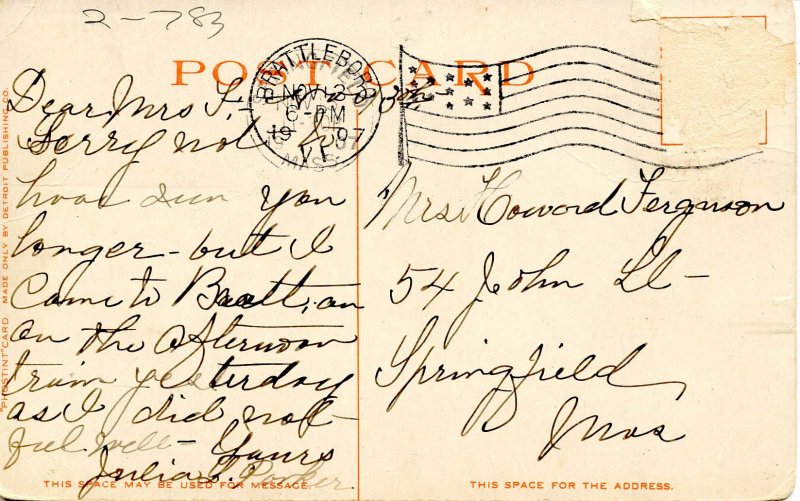 2-783
POST CARD
BRATTLEBORO
NOV 3
6-PM
1907
VT.
MASS.
Dear Mrs F.
Sorry not to
have seen you
longer - but I
Came to Bratt. on
on the afternoon
train yesterday
as I did not
feel well - Yours
Julia S. Parker
Mrs. Howard Ferguson
54 John St -
Springfield
Mas
THIS SPACE MAY BE USED FOR MESSAGE.
THIS SPACE FOR THE ADDRESS.
"PHOSTINT" CARD MADE ONLY BY DETROIT PUBLISHING CO.